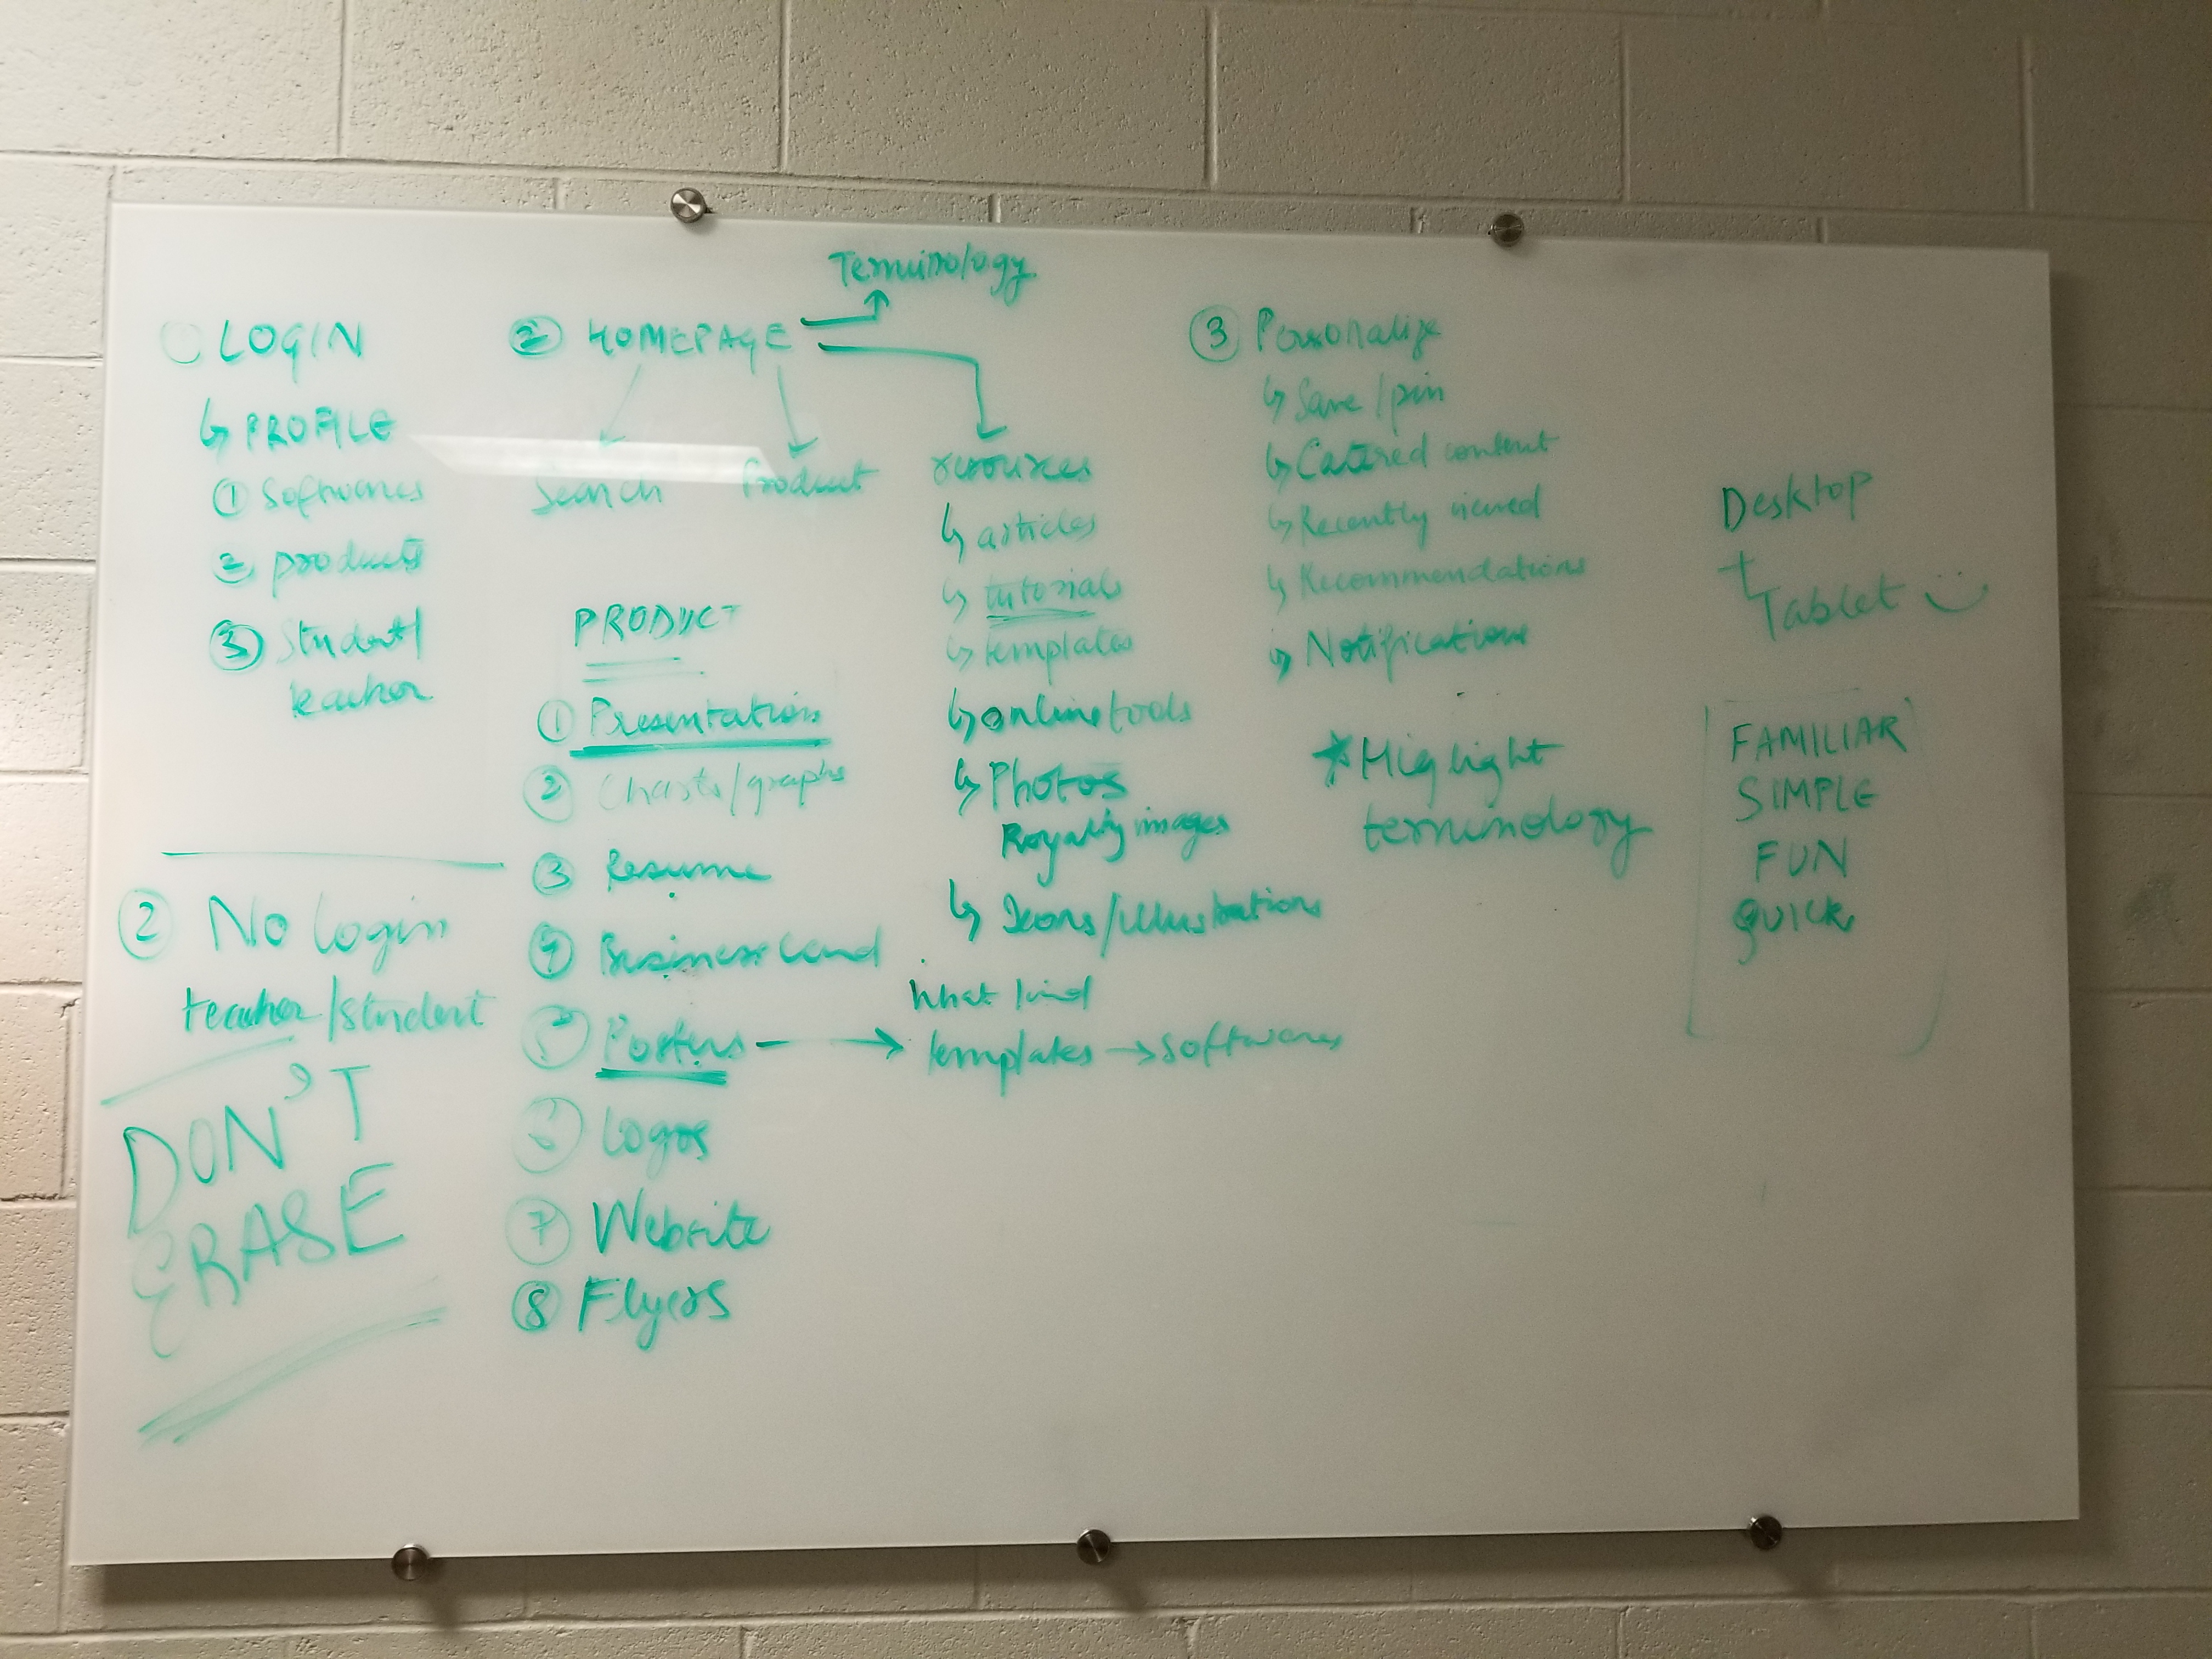 ① LOGIN
↳ PROFILE
① Softwares
② products
③ Student/
teacher
② No login
teacher/student
DON'T
ERASE
② HOMEPAGE
Terminology
Search
Product
resources
↳ articles
↳ tutorials
↳ templates
↳ online tools
↳ Photos
Royalty images
↳ Icons/illustrations
PRODUCT
① Presentation
② Charts/graphs
③ Resume
④ Business Card
⑤ Posters →
What kind
templates → Softwares
⑥ Logos
⑦ Website
⑧ Flyers
③ Personalize
↳ Save/pin
↳ Catered content
↳ Recently viewed
↳ Recommendations
↳ Notifications
* Highlight
terminology
Desktop
+
Tablet
FAMILIAR
SIMPLE
FUN
QUICK